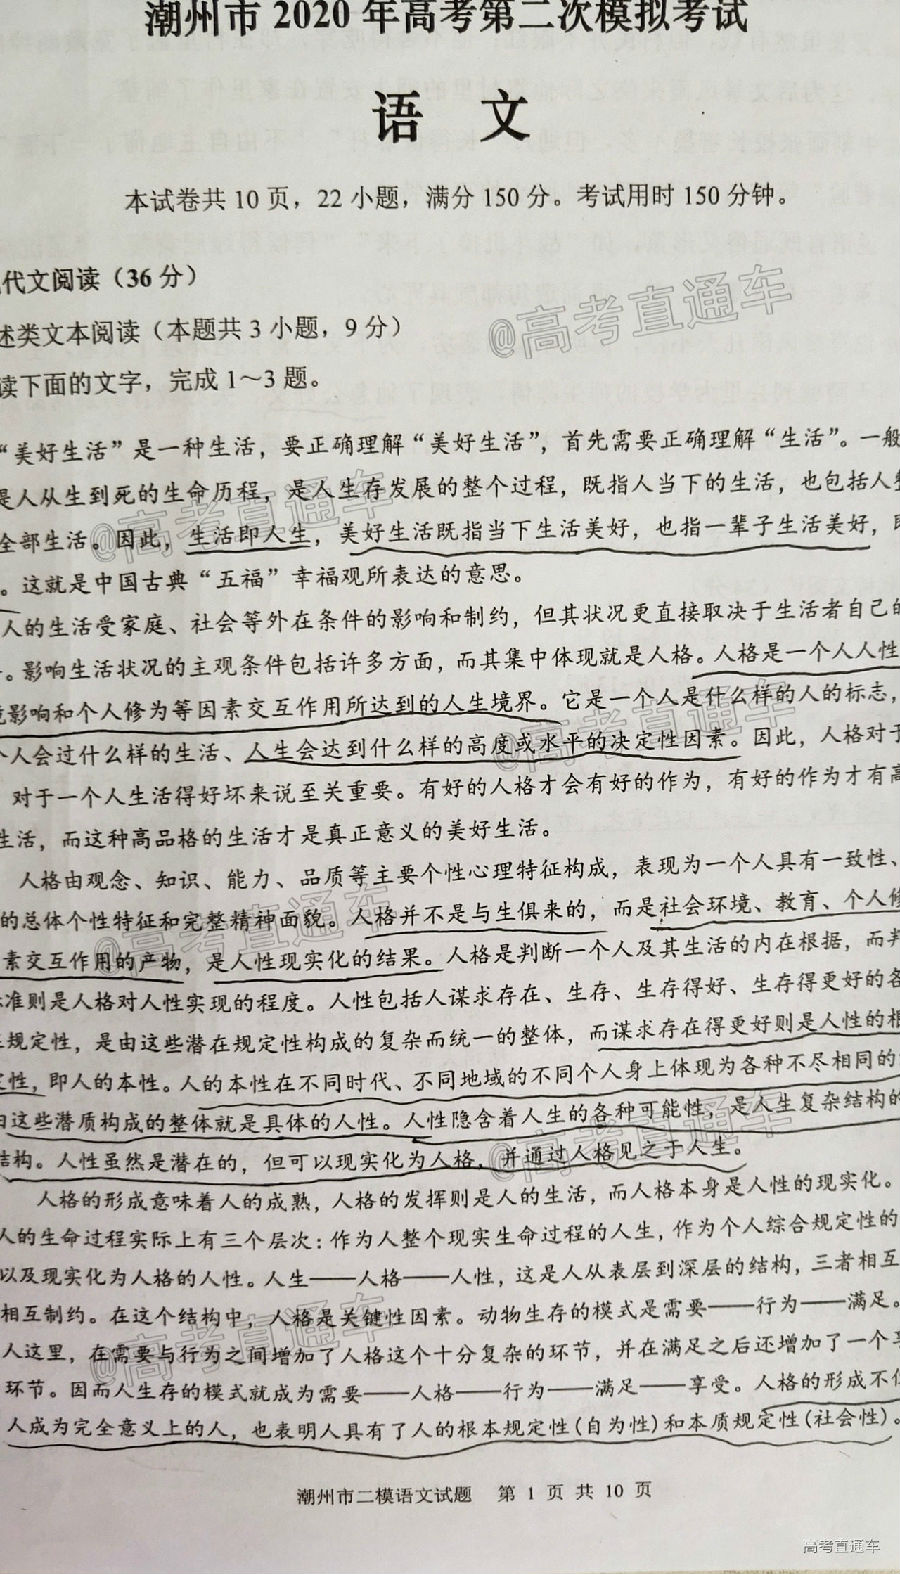 潮州市2020年高考第二次模拟考试
语 文
本试卷共10页，22小题，满分150分。考试用时150分钟。
代文阅读（36分）
述类文本阅读（本题共3小题，9分）
读下面的文字，完成1～3题。
“美好生活”是一种生活，要正确理解“美好生活”，首先需要正确理解“生活”。一般
是人从生到死的生命历程，是人生存发展的整个过程，既指人当下的生活，也包括人整
全部生活。因此，生活即人生，美好生活既指当下生活美好，也指一辈子生活美好，即
。这就是中国古典“五福”幸福观所表达的意思。
人的生活受家庭、社会等外在条件的影响和制约，但其状况更直接取决于生活者自己的
。影响生活状况的主观条件包括许多方面，而其集中体现就是人格。人格是一个人人性
影响和个人修为等因素交互作用所达到的人生境界。它是一个人是什么样的人的标志，
个人会过什么样的生活、人生会达到什么样的高度或水平的决定性因素。因此，人格对于
对于一个人生活得好坏来说至关重要。有好的人格才会有好的作为，有好的作为才有高
生活，而这种高品格的生活才是真正意义的美好生活。
人格由观念、知识、能力、品质等主要个性心理特征构成，表现为一个人具有一致性、
的总体个性特征和完整精神面貌。人格并不是与生俱来的，而是社会环境、教育、个人修
素交互作用的产物，是人性现实化的结果。人格是判断一个人及其生活的内在根据，而判
准则是人格对人性实现的程度。人性包括人谋求存在、生存、生存得好、生存得更好的各
规定性，是由这些潜在规定性构成的复杂而统一的整体，而谋求存在得更好则是人性的根
定性，即人的本性。人的本性在不同时代、不同地域的不同个人身上体现为各种不尽相同的
由这些潜质构成的整体就是具体的人性。人性隐含着人生的各种可能性，是人生复杂结构的
结构。人性虽然是潜在的，但可以现实化为人格，并通过人格见之于人生。
人格的形成意味着人的成熟，人格的发挥则是人的生活，而人格本身是人性的现实化。
人的生命过程实际上有三个层次：作为人整个现实生命过程的人生，作为个人综合规定性的
以及现实化为人格的人性。人生——人格——人性，这是人从表层到深层的结构，三者相互
相互制约。在这个结构中，人格是关键性因素。动物生存的模式是需要——行为——满足。
人这里，在需要与行为之间增加了人格这个十分复杂的环节，并在满足之后还增加了一个享
环节。因而人生存的模式就成为需要——人格——行为——满足——享受。人格的形成不仅
人成为完全意义上的人，也表明人具有了人的根本规定性（自为性）和本质规定性（社会性）。
潮州市二模语文试题 第 1 页 共 10 页
@高考直通车
@高考直通车
@高考直通车
@高考直通车
@高考直通车
@高考直通车
高考直通车